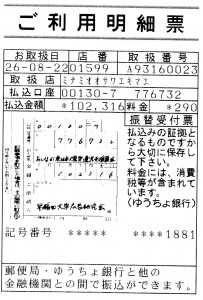 ご利用明細票
お取扱日 店番 取扱番号
26-08-22 01599 A93160023
取扱店 ミナミオオサワエキマエ
払込口座 00130-7 776732
払込金額 *102,316 料金 *290
振替受付票
払込みの証拠と
なるものですか
ら大切に保存し
て下さい。
料金には、消費
税等が含まれて
います。
(ゆうちょ銀行)
00130 7
77673 2
102316
記号番号 ***** ****1881
郵便局・ゆうちょ銀行と他の
金融機関との間で振込ができます。